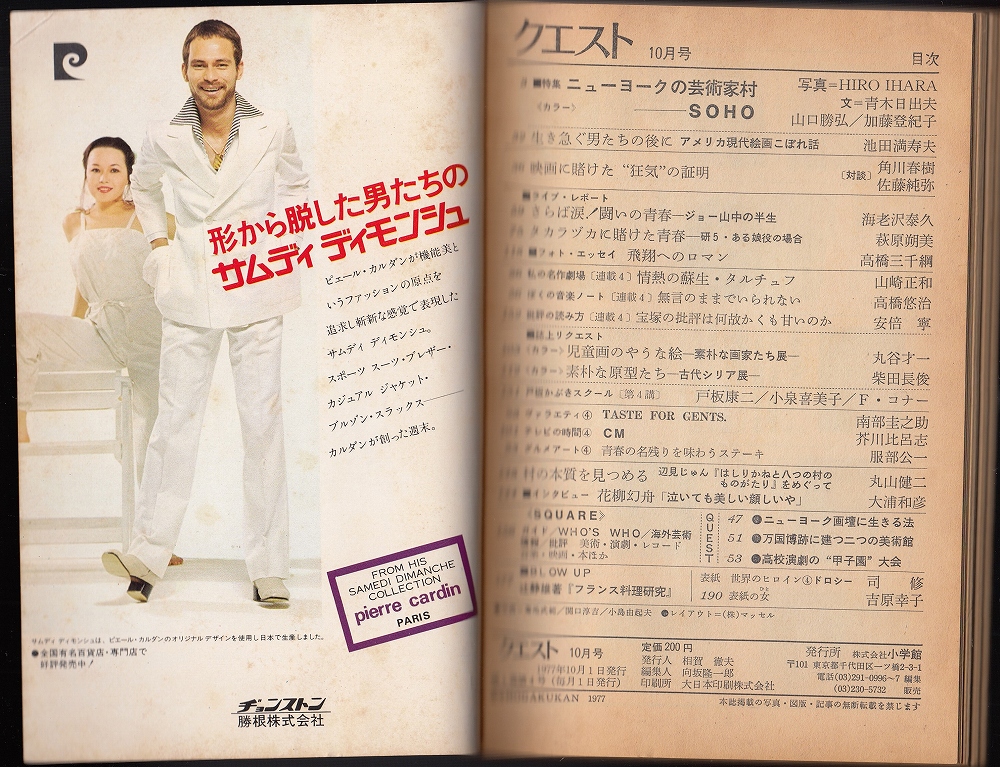 形から脱した男たちの
サムディ ディモンシュ
ピエール・カルダンが機能美と
いうファッションの原点を
追求し斬新な感覚で表現した
サムディ ディモンシュ。
スポーツ スーツ・ブレザー・
カジュアル ジャケット・
ブルゾン・スラックス──
カルダンが創った週末。
FROM HIS
SAMEDI DIMANCHE
COLLECTION
pierre cardin
PARIS
サムディ ディモンシュは、ピエール・カルダンのオリジナルデザインを使用し日本で生産しました。
●全国有名百貨店・専門店で
好評発売中!
ヂョンストン
勝根株式会社
クエスト 10月号 目次
■特集 ニューヨークの芸術家村 写真=HIRO IHARA
〈カラー〉 ──SOHO 文=青木日出夫
山口勝弘/加藤登紀子
生き急ぐ男たちの後に アメリカ現代絵画こぼれ話 池田満寿夫
映画に賭けた“狂気”の証明 〔対談〕 角川春樹
佐藤純弥
■ライブ・レポート
さらば涙!闘いの青春─ジョー山中の半生 海老沢泰久
タカラヅカに賭けた青春─研5・ある娘役の場合 萩原朔美
■フォト・エッセイ 飛翔へのロマン 高橋三千綱
私の名作劇場〔連載4〕情熱の蘇生・タルチュフ 山崎正和
ぼくの音楽ノート〔連載4〕無言のままでいられない 高橋悠治
批評の読み方〔連載4〕宝塚の批評は何故かくも甘いのか 安倍 寧
■誌上リクエスト
〈カラー〉児童画のやうな絵─素朴な画家たち展─ 丸谷才一
〈カラー〉素朴な原型たち─古代シリア展─ 柴田長俊
戸板かぶきスクール〔第4講〕 戸板康二/小泉喜美子/F・コナー
ヴァラエティ④ TASTE FOR GENTS. 南部圭之助
テレビの時間④ CM 芥川比呂志
グルメアート④ 青春の名残りを味わうステーキ 服部公一
村の本質を見つめる 辺見じゅん『はしりかねと八つの村の
ものがたり』をめぐって 丸山健二
■インタビュー 花柳幻舟「泣いても美しい顔しいや」 大浦和彦
《SQUARE》
ガイド/WHO'S WHO/海外芸術
情報/批評 美術・演劇・レコード
音楽・映画・本ほか
QUEST
47 ニューヨーク画壇に生きる法
51 万国博跡に建つ二つの美術館
53 高校演劇の“甲子園”大会
■BLOW UP
『フランス料理研究』
表紙 世界のヒロイン④ドロシー 司 修
190 表紙の女 吉原幸子
ひと
関口淳吉/小島由起夫 ●レイアウト=(株)マッセル
クエスト 10月号
1977年10月1日発行
(毎月1日発行)
SHOGAKUKAN 1977
定価200円
発行人 相賀 徹夫
編集人 向坂隆一郎
印刷所 大日本印刷株式会社
発行所 株式会社小学館
〒101 東京都千代田区一ツ橋2-3-1
電話(03)291-0996~7 編集
(03)230-5732 販売
本誌掲載の写真・図版・記事の無断転載を禁じます